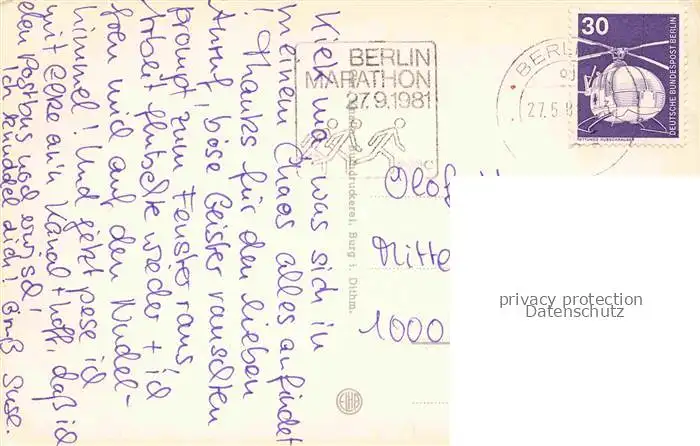 Kiek mal, was sich in
meinem Chaos alles anfindet
! Thanks für den lieben
Anruf, böse Geister rauschten
prompt zum Fenster raus,
Arbeit flutschte wieder + ich
freu mich auf den Nudel-
himmel! Und jetzt pese ich
mit Elke an'n Kanal + hoff, daß ich
den Postbus noch erwisch'.
Ich knuddel dich! Gruß Suse.
BERLIN
MARATHON
27.9.1981
BERLIN
27.5.8
30
DEUTSCHE BUNDESPOST BERLIN
RETTUNGS-HUBSCHRAUBER
Olof
Mitte
1000
privacy protection
Datenschutz
Burg i. Dithm.